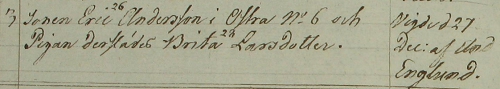 3) Sonen Eric 26 Andersson i Östra No 6 och Vigde d 27
Pigan derstädes Brita 23 Larsdotter. Dec: af And
Englund.